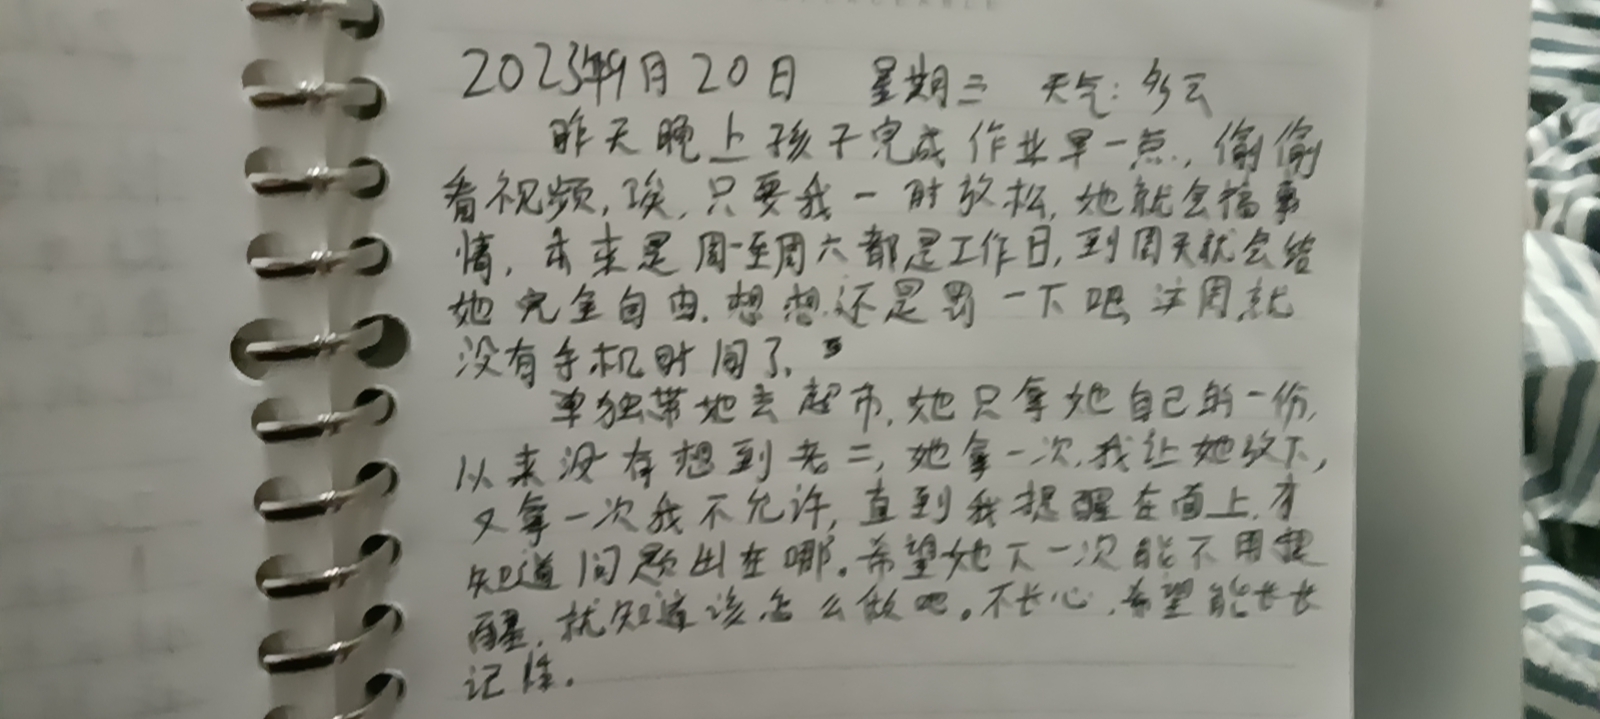 2023年9月20日 星期三 天气:多云
昨天晚上孩子完成作业早一点,偷偷
看视频,唉,只要我一时放松,她就会搞事
情,本来是周一至周六都是工作日,到周天就会给
她完全自由,想想还是罚一下吧,这周就
没有手机时间了。
单独带她去超市,她只拿她自己的一份,
从来没有想到老二,她拿一次,我让她放下,
又拿一次我不允许,直到我提醒在面上,才
知道问题出在哪。希望她下一次能不用提
醒,就知道该怎么做吧。不长心,希望能长长
记性。